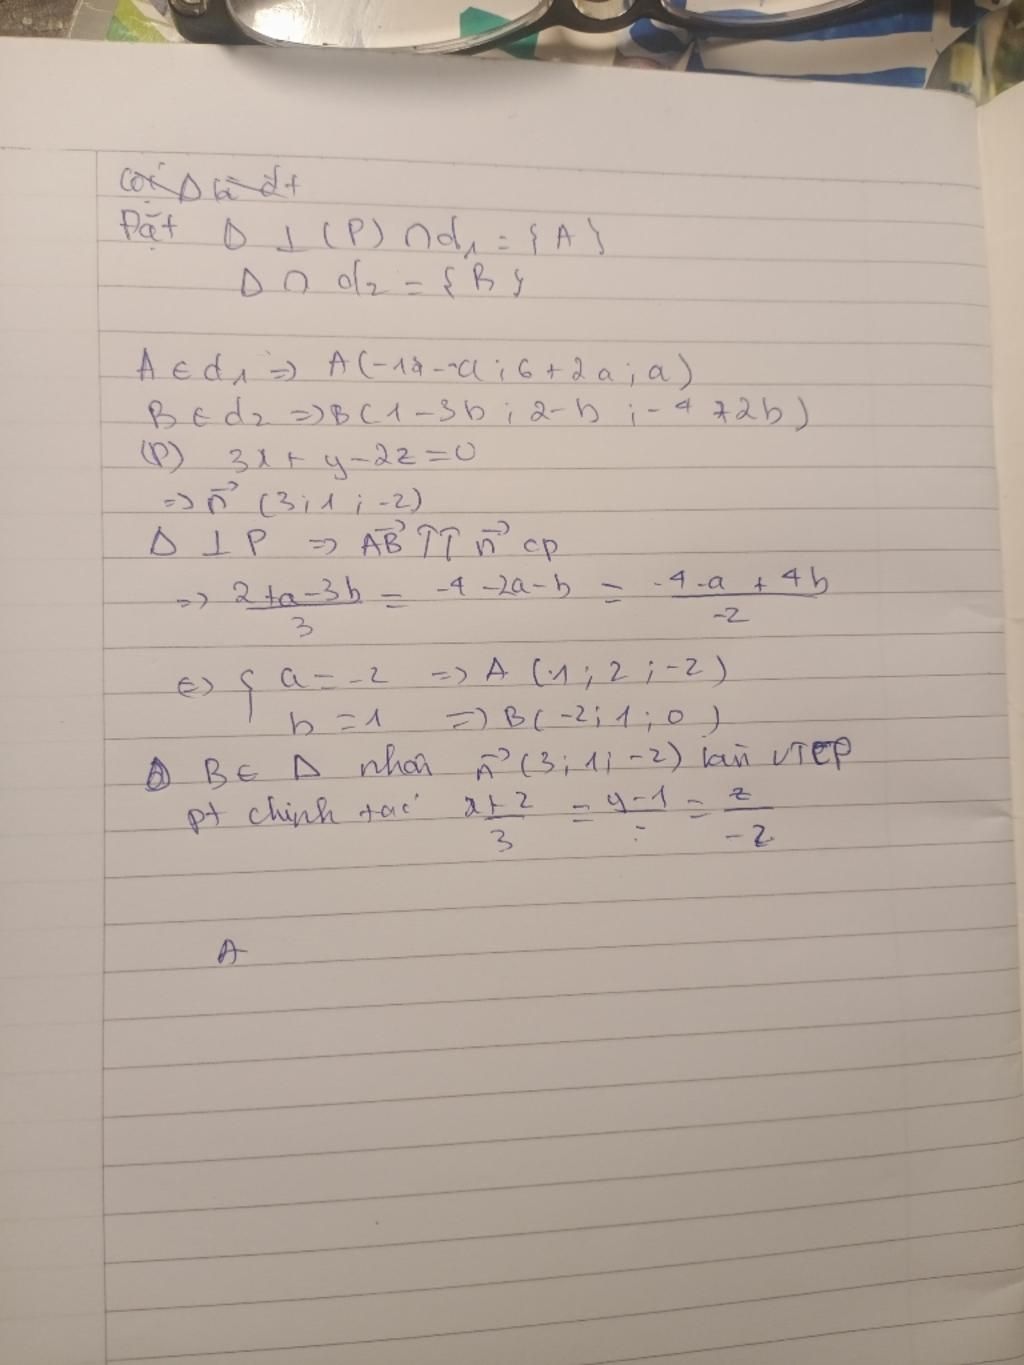 Gọi Δ là đt
Đặt Δ ⊥ (P) ∩ d₁ = {A}
Δ ∩ d₂ = {B}
A ∈ d₁ => A(-1 -a ; 6 + 2a ; a)
B ∈ d₂ => B(1 - 3b ; 2 - b ; -4 + 2b)
(P) 3x + y - 2z = 0
=> n⃗ (3 ; 1 ; -2)
Δ ⊥ P => AB⃗ ↑↑ n⃗ cp
=> (2 + a - 3b)/3 = -4 - 2a - b = (-4 - a + 4b)/-2
<=> { a = -2 => A (1 ; 2 ; -2)
b = 1 => B(-2 ; 1 ; 0)
B ∈ Δ nhận n⃗ (3 ; 1 ; -2) làm VTCP
pt chính tắc (x + 2)/3 = y - 1 = z/-2
A